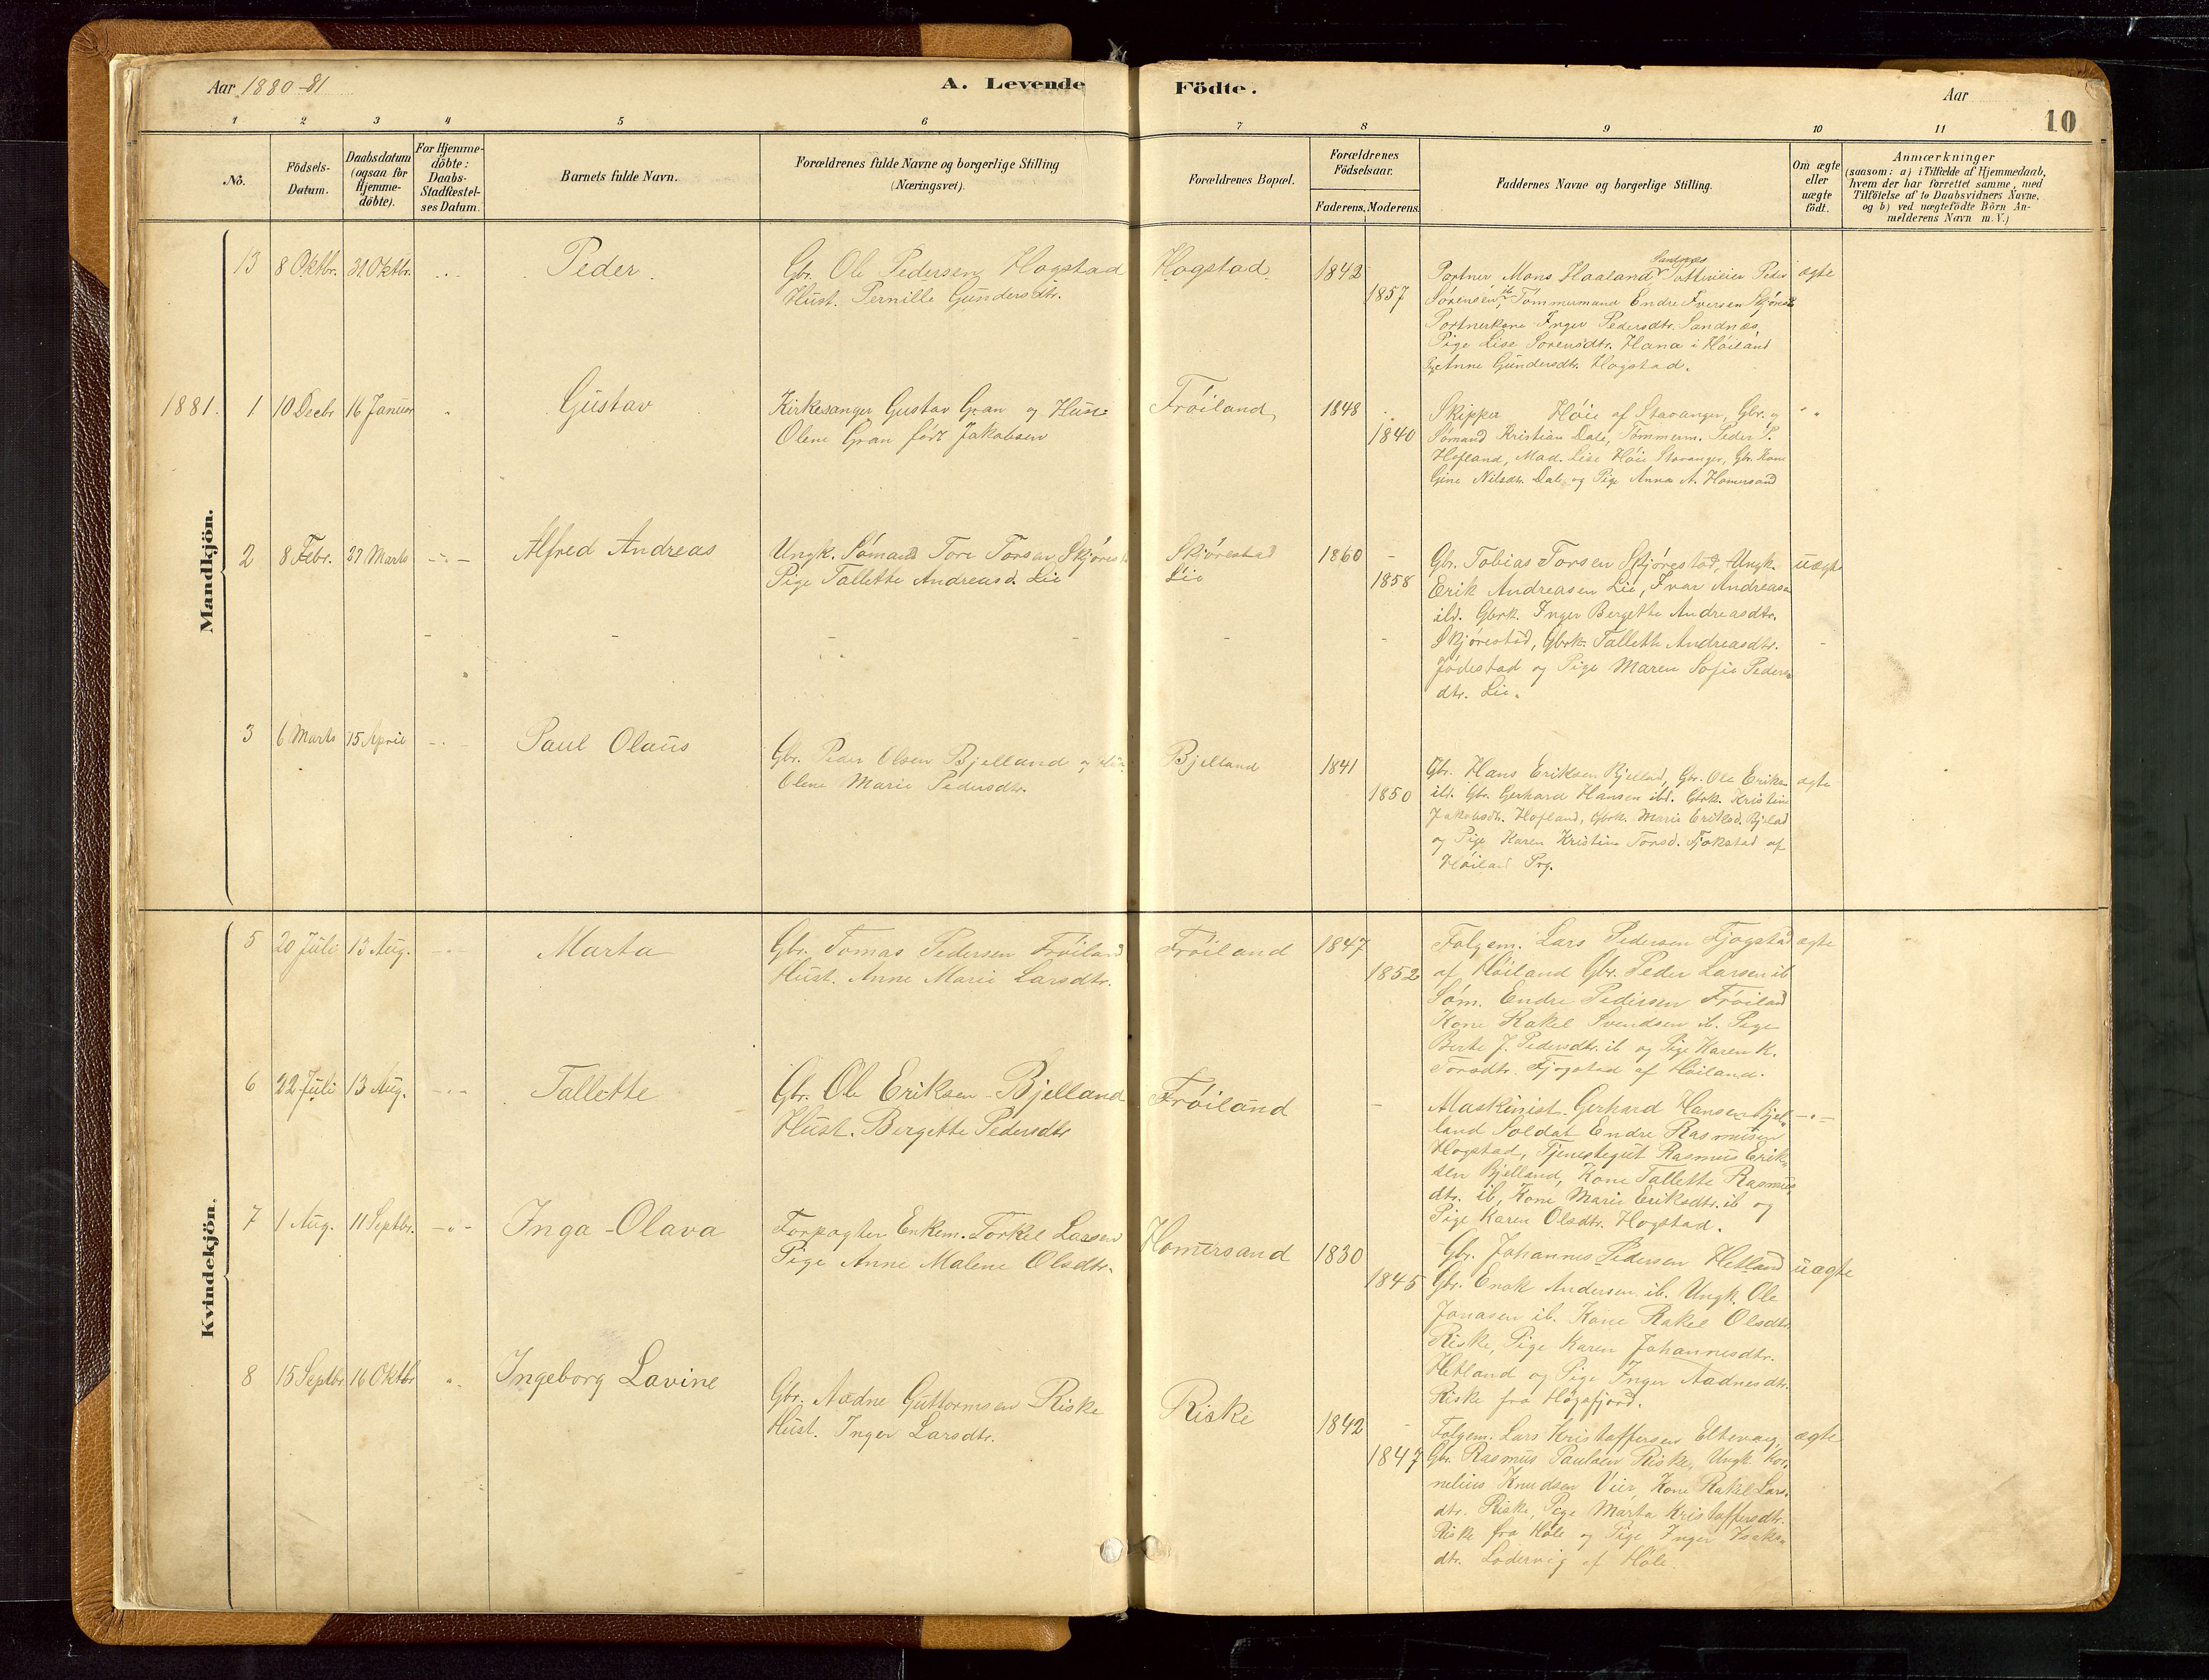 Aar 1880-81
A. Levende
Födte.
Aar
10
1 2 3 4 5 6 7 8 9 10 11
No.
Födsels-
Datum.
Daabsdatum
(ogsaa for
Hjemme-
döbte).
For Hjemme-
döbte:
Daabs-
Stadfæstel-
ses Datum.
Barnets fulde Navn.
Forældrenes fulde Navne og borgerlige Stilling
(Næringsvei).
Forældrenes Bopæl.
Forældrenes
Födselsaar.
Faderens. Moderens.
Faddernes Navne og borgerlige Stilling.
Om ægte
eller
uægte
födt.
Anmærkninger
(saasom: a) i Tilfælde af Hjemmedaab,
hvem der har forrettet samme, med
Tilföielse af to Daabsvidners Navne,
og b) ved uægtefödte Börn An-
melderens Navn m. V.)
Mandkjön.
13 8 Oktbr. 31 Oktbr. Peder.
Gbr. Ole Pedersen Hogstad
Hust. Pernille Gundersdtr.
Hogstad
1842
1857
Sandnæs
Portner Mons Haaland Peder
Sørensen ib Tømmermand Endre Iversen
Portnerkone Inger Pedersdtr. Sandnæs,
Pige Lise Sorensdtr. Hana i Høiland
Anne Gundersdtr. Hogstad.
ægte
1881. 1 10 Decbr 16 Januar Gustav
Kirkesanger Gustav Gran og Hust.
Olene Gran født Jakobsen
Frøiland
1848
1840
Skipper Høie af Stavanger, Gbr. og
Sømand Kristian Dale, Tømmerm. Peder P.
Hofland, Mad. Lise Høie Stavanger, Gbr. Kone
Gine Nilsdtr. Dale og Pige Anna A. Homersand
2 8 Febr. 27 Marts Alfred Andreas
Ungk. Sømand Tore Torsen Skjørestad
Pige Tallette Andreasd. Lie
Skjørestad
Lie
1860
1858
Gbr. Tobias Torsen Skjørestad, Ungk.
Erik Andreasen Lie, Ivar Andreasen
ibd. Gbrk. Inger Bergette Andreasdtr.
Skjørestad, Gbrk. Tallette Andreasdtr.
Jødestad og Pige Maren Sofie Peders-
dtr. Lie.
uægte
3 6 Marts 15 April Paul Olaus
Gbr. Peder Olsen Bjelland og Hust.
Olene Marie Pedersdtr.
Bjelland
1841
1850
Gbr. Hans Eriksen Bjelland, Gbr. Ole Eriksen
ibd. Gbr. Gerhard Hansen ibd. Gbrk. Kristine
Jakobsdtr. Hofland, Gbrk. Marie Eriksd. Bjelland
og Pige Karen Kristine Torsd. Fjokstad af
Høiland Prg.
ægte
Kvindekjön.
5 20 Juli 13 Aug. Marta
Gbr. Tomas Pedersen Frøiland
Hust. Anne Marie Larsdtr.
Frøiland
1847
1852
Folgem. Lars Pedersen Fjogstad
af Høiland Gbr. Peder Larsen ib
Søm. Endre Pedersen Frøiland
Kone Rakel Svendsen ib. Pige
Berte J. Pedersdtr. ib og Pige Karen K.
Torsdtr. Fjogstad af Høiland.
ægte
6 22 Juli 13 Aug. Tallette
Gbr. Ole Eriksen Bjelland
Hust. Bergette Pedersdtr
Frøiland
Maskinist Gerhard Hansen Bjel-
land Soldat Endre Rasmusen
Hogstad, Tjenestegut Rasmus Erik-
sen Bjelland, Kone Tallette Rasmus-
dtr. ib, Kone Marie Eriksdtr. ib og
Pige Karen Olsdtr. Hogstad.
7 1 Aug. 11 Septbr. Inga Olava
Forpagter Enkem. Torkel Larsen
Pige Anne Malene Olsdtr.
Homersand
1830
1845
Gbr. Johannes Pedersen Hetland
Gbr. Enok Andersen ib. Ungk. Ole
Jonasen ib. Kone Rakel Olsdtr.
Riske, Pige Karen Johannesdtr.
Hetland og Pige Inger Aadnesdtr.
Riske fra Høgsfjord.
uægte
8 15 Septbr 16 Oktbr Ingeborg Lavine
Gbr. Aadne Guttormsen Riske
Hust. Inger Larsdtr.
Riske
1842
1847
Folgem. Lars Kristoffersen Eltevaag,
Gbr. Rasmus Paulsen Riske, Ungk. Kor-
nelius Knudsen Vier, Kone Rakel Lars-
dtr. Riske, Pige Marta Kristoffersdtr.
Riske fra Høle og Pige Inger Isaks-
dtr. Lodervig af Høle.
ægte